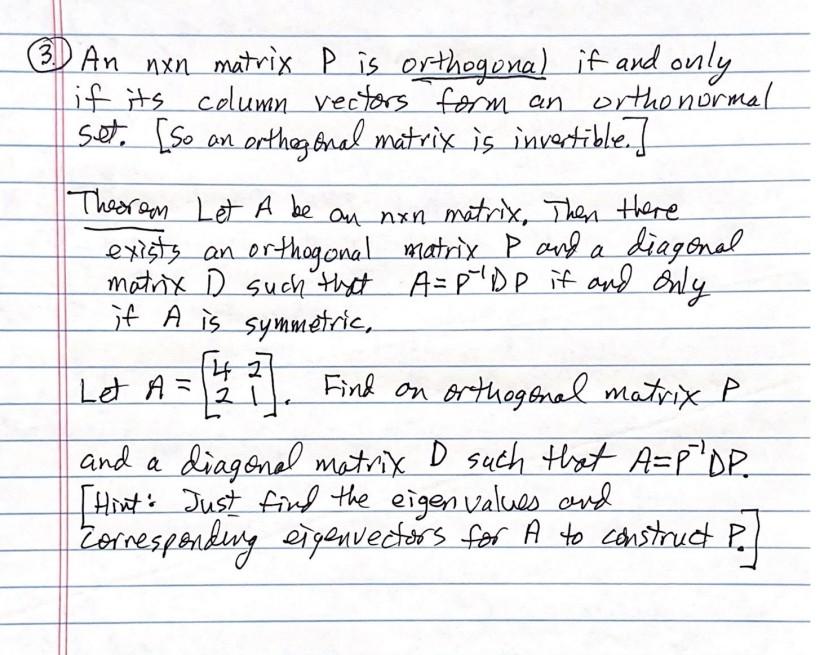 ③ An nxn matrix P is orthogonal if and only
if its column vectors form an orthonormal
set. [So an orthogonal matrix is invertible.]
Theorem Let A be an nxn matrix. Then there
exists an orthogonal matrix P and a diagonal
matrix D such that A=P⁻¹DP if and only
if A is symmetric.
Let A = [4 2
2 1]. Find an orthogonal matrix P
and a diagonal matrix D such that A=P⁻¹DP.
[Hint: Just find the eigenvalues and
corresponding eigenvectors for A to construct P.]